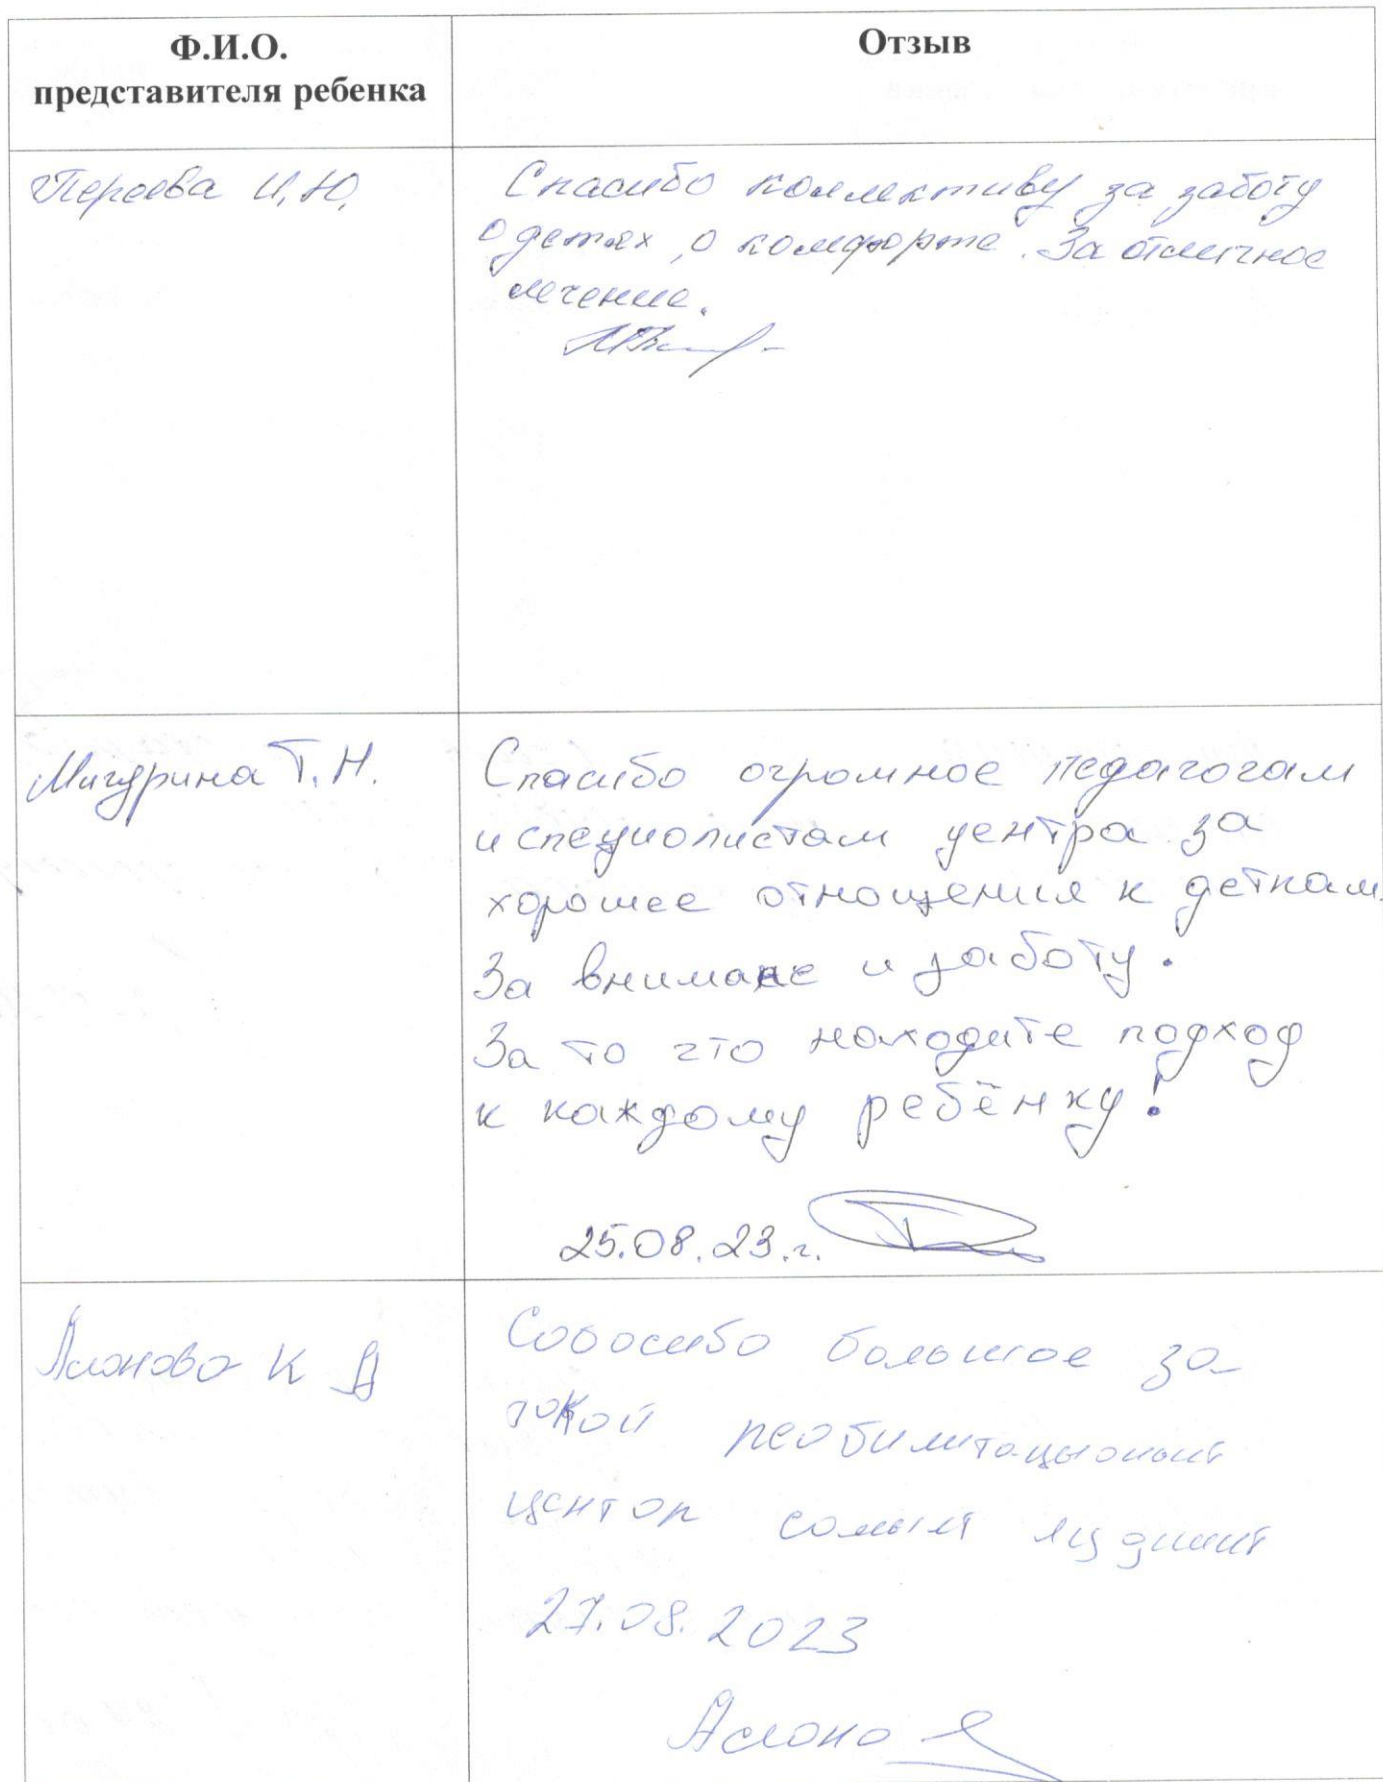 Ф.И.О.
представителя ребенка
Отзыв
Переева И.Ю.
Спасибо коллективу за заботу
о детях, о комфорте. За отличное
лечение.
Мигурина Т.Н.
Спасибо огромное педагогам
и специолистам центра за
хорошее отнощения к деткам.
За внимание и заботу.
За то что находите подход
к каждому ребёнку!
25.08.23.г.
К А
большое за
токой
самый
27.08.2023